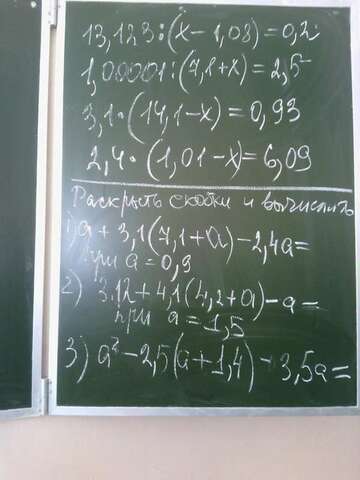 13,123:(x-1,08)=0,2
1,00001:(7,1+x)=2,5
3,1·(14,1-x)=0,93
2,4·(1,01-x)=6,09
Раскрыть скобки и вычислить
1) a+3,1(7,1+a)-2,4a=
при a=0,9
2) 3.12+4,1(4,2+a)-a=
при a=1,5
3) a²-2,5(a+1,4)-3,5a=